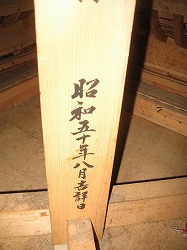 昭和五十年八月吉祥日